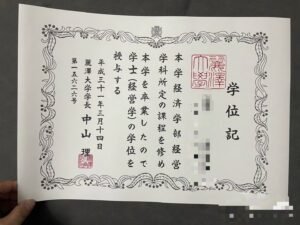 学位記
麗澤大學
本学経済学部経営
学科所定の課程を修め
本学を卒業したので
学士（経営学）の学位を
授与する
平成三十一年三月十四日
麗澤大学学長 中山 理
第一五六二六号